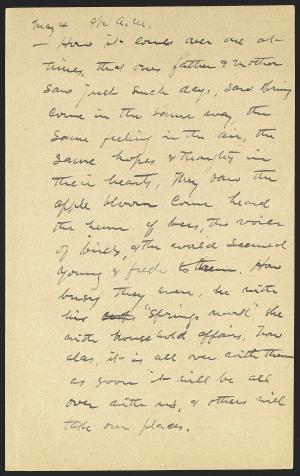 May 4 9½ A.M.
— How it comes over one at
times, that ones father & mother
saw just such days, saw spring
come in the same way, the
same feeling in the air, the
same hopes & thoughts in
their hearts, They saw the
apple bloom come heard
the hum of bees, the voices
of birds, & the world seemed
young & fresh to them. How
busy they were, he with
his "Spring's work" she
with household affairs. Now
alas, it is all over with them
as soon it will be all
over with us, & others will
take our places.